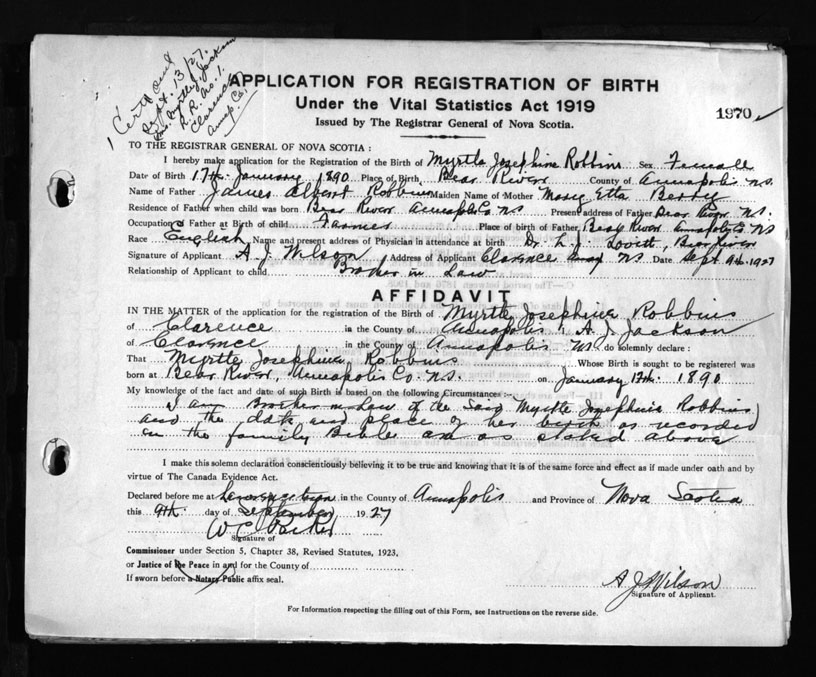 Cert sent
Sept. 13/27.
Mrs. Myrtle J. Jackson
R.R. No. 1.
Clarence
Annap. Co.
APPLICATION FOR REGISTRATION OF BIRTH
Under the Vital Statistics Act 1919
Issued by The Registrar General of Nova Scotia.
1970
TO THE REGISTRAR GENERAL OF NOVA SCOTIA :
I hereby make application for the Registration of the Birth of Myrtle Josephine Robbins Sex Female
Date of Birth 17th January 1890 Place of Birth, Bear River County of Annapolis N.S.
Name of Father James Albert Robbins Maiden Name of Mother Mary Etta Berry
Residence of Father when child was born Bear River Annapolis Co NS Present address of Father Bear River N.S.
Occupation of Father at Birth of child Farmer Place of birth of Father Bear River Annapolis Co NS
Race English Name and present address of Physician in attendance at birth Dr. L. J. Lovitt, Bear River
Signature of Applicant A. J. Wilson Address of Applicant Clarence Annap NS Date Sept 9th 1927
Relationship of Applicant to child Brother in Law
AFFIDAVIT
IN THE MATTER of the application for the registration of Birth of Myrtle Josephine Robbins
of Clarence in the County of Annapolis I, A. J. Jackson
of Clarence in the County of Annapolis NS do solemnly declare :
That Myrtle Josephine Robbins Whose Birth is sought to be registered was
born at Bear River, Annapolis Co. N.S. on January 17th. 1890
My knowledge of the fact and date of such Birth is based on the following Circumstances :—
I am Brother in Law of the Said Myrtle Josephine Robbins
and the date and place of her birth is recorded
in the family Bible and as stated above
I make this solemn declaration conscientiously believing it to be true and knowing that it is of the same force and effect as if made under oath and by
virtue of The Canada Evidence Act.
Declared before me at Lawrencetown in the County of Annapolis and Province of Nova Scotia
this 9th. day of September 1927
W C Parker
Signature of
Commissioner under Section 5, Chapter 38, Revised Statutes, 1923,
or Justice of the Peace in and for the County of
If sworn before a Notary Public affix seal.
A J Wilson
Signature of Applicant.
For Information respecting the filling out of this Form, see Instructions on the reverse side.